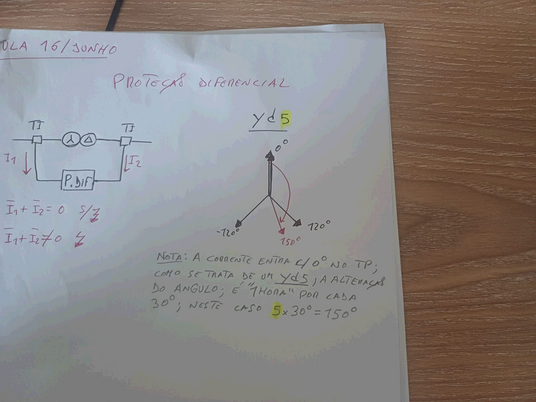 ULA 16/JUNHO
PROTEÇÃO DIFERENCIAL
TI
TI
I1
I2
P.DIF
I1 + I2 = 0 S/
I1 + I2 ≠ 0
Yd5
0°
-120°
150°
120°
NOTA: A CORRENTE ENTRA C/ 0° NO TP;
COMO SE TRATA DE UM Yd5, A ALTERAÇÃO
DO ANGULO; É "1HORA" POR CADA
30°; NESTE CASO 5x30°=150°